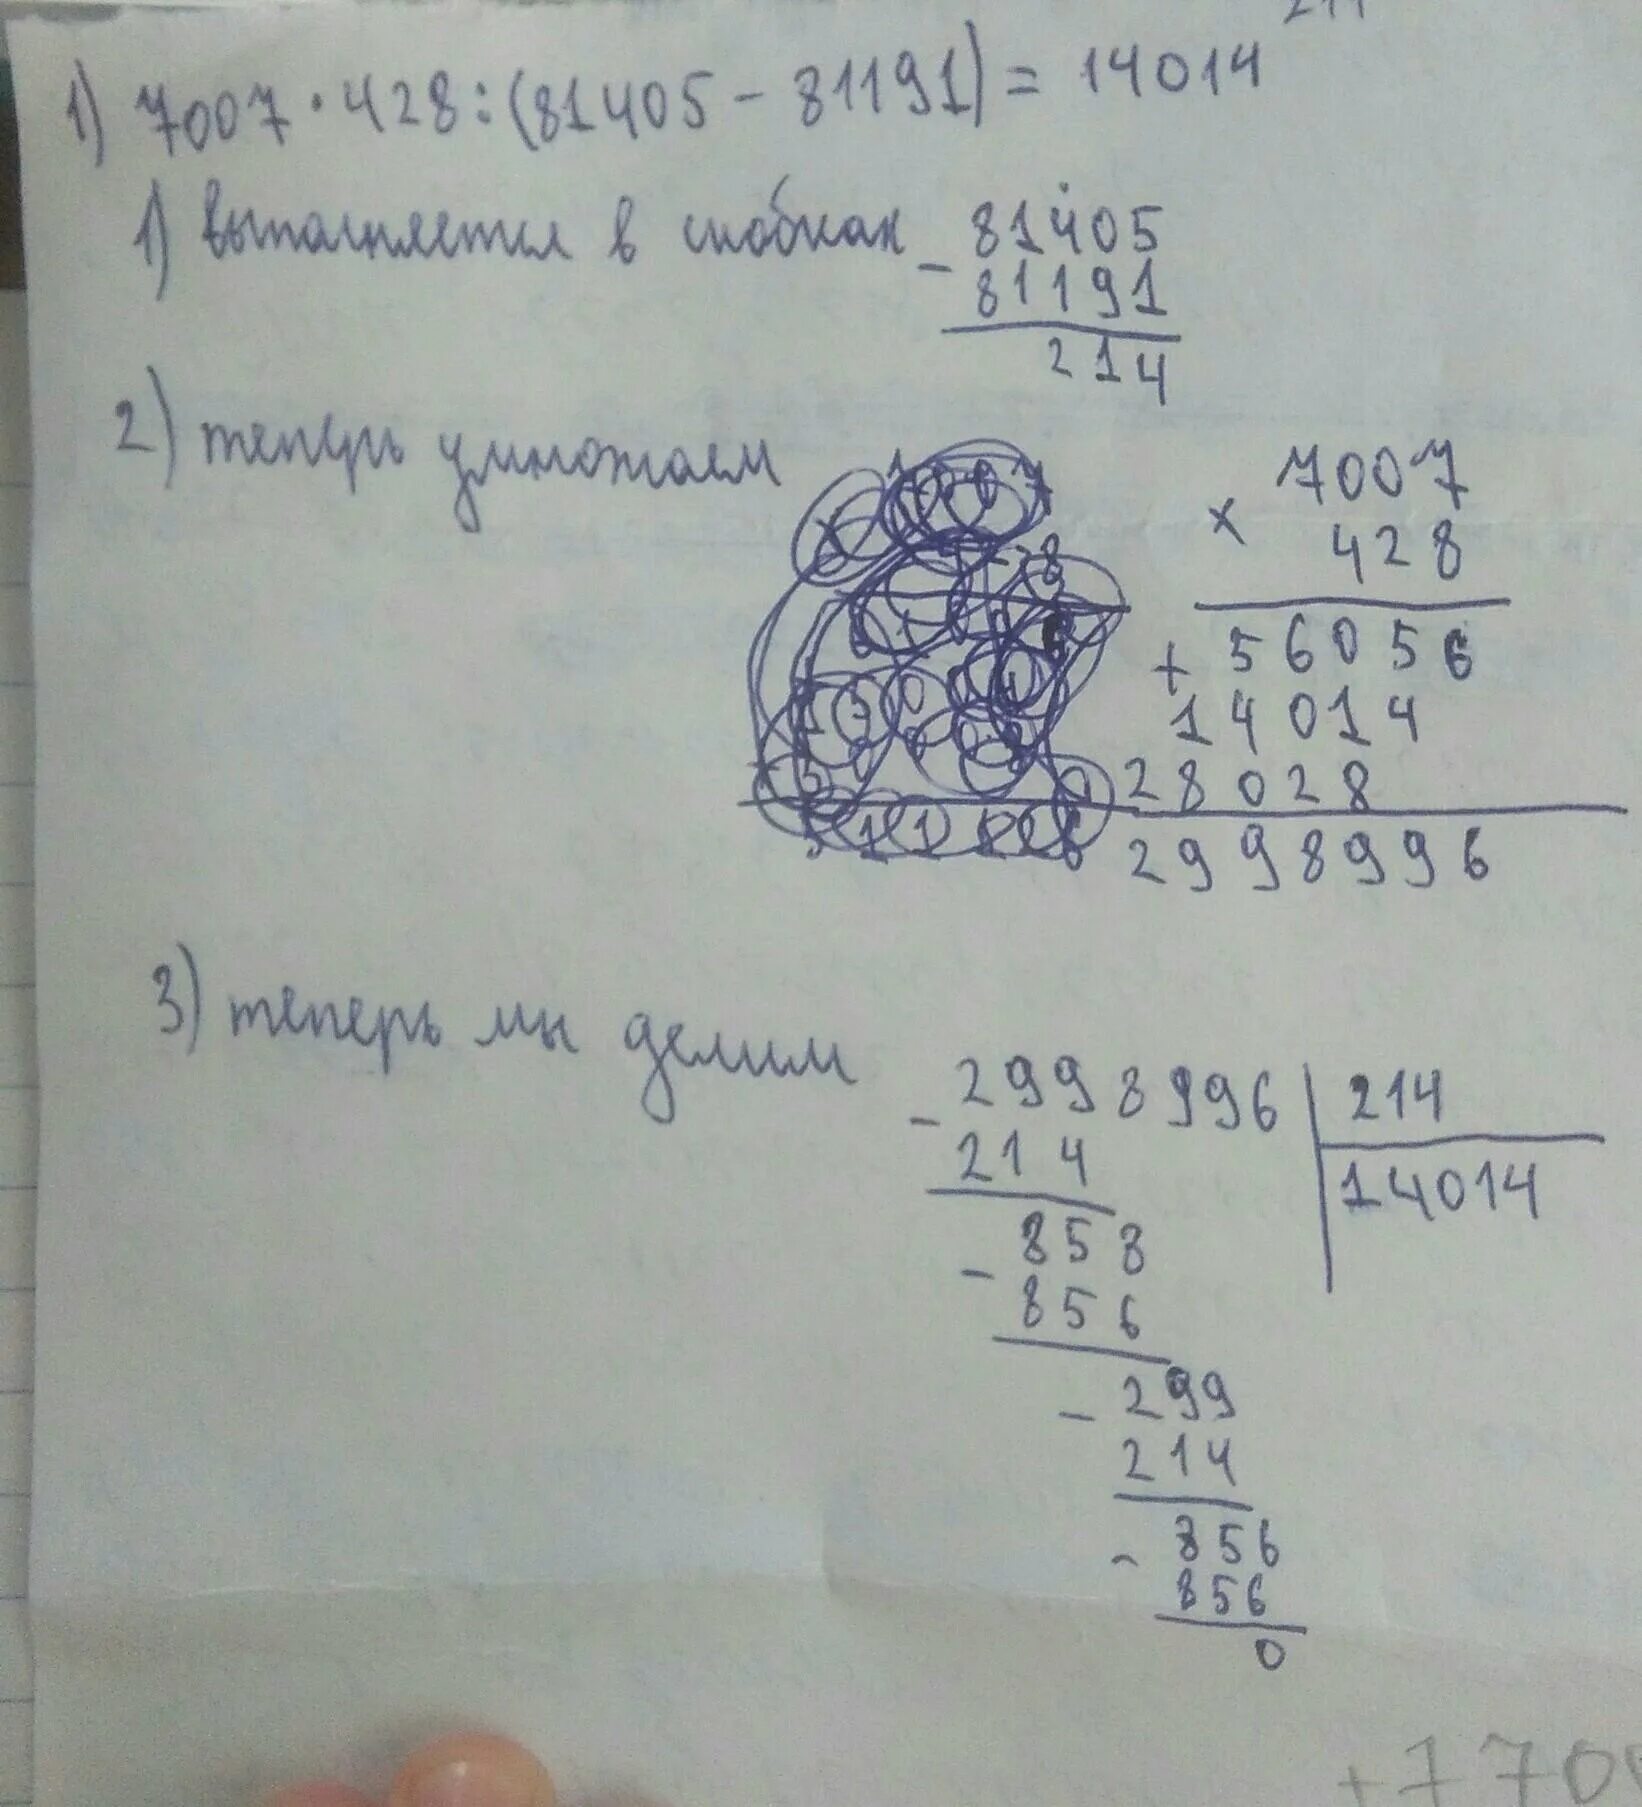 1) 7007 · 428 : (81405 - 81191) = 14014
1) выполняется в скобках
- 81405
81191
214
2) теперь умножаем
7007
× 428
+ 56056
14014
28028
2998996
3) теперь мы делим
- 2998996 | 214
214 | 14014
- 858
856
- 299
214
- 856
856
0